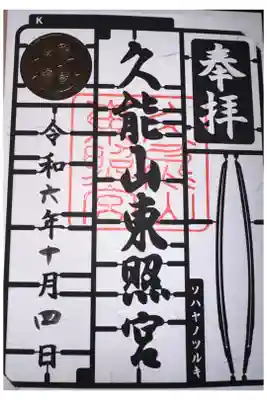 K
奉拝
久能山東照宮
ソハヤノツルキ
令和六年十月四日